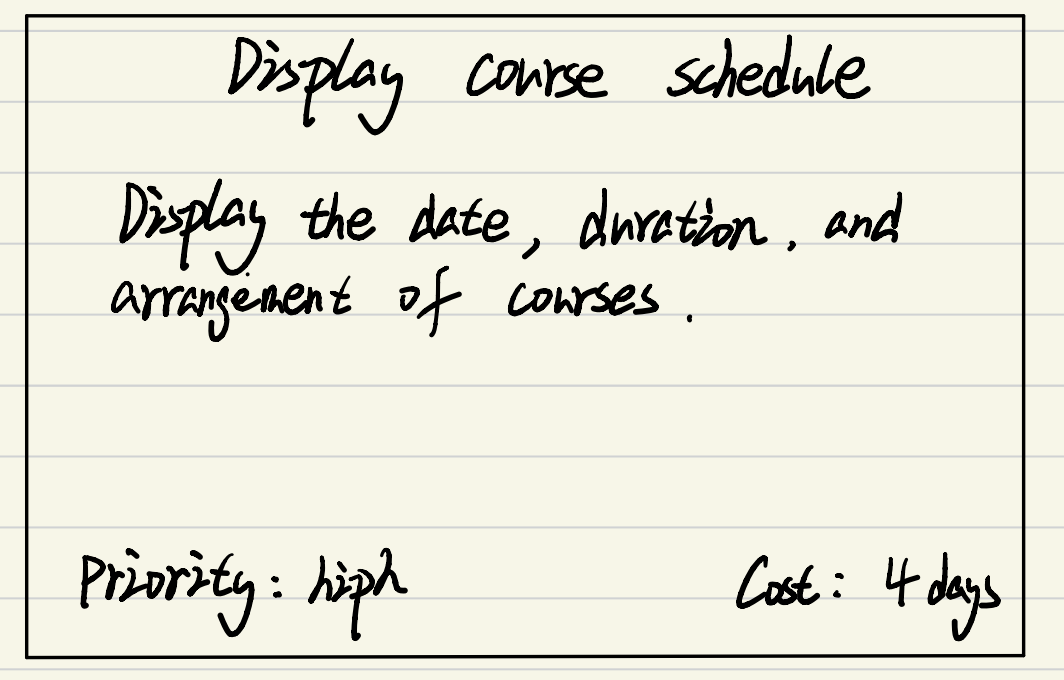 Display course schedule
Display the date, duration, and
arrangement of courses.
Priority: hiph
Cost: 4 days